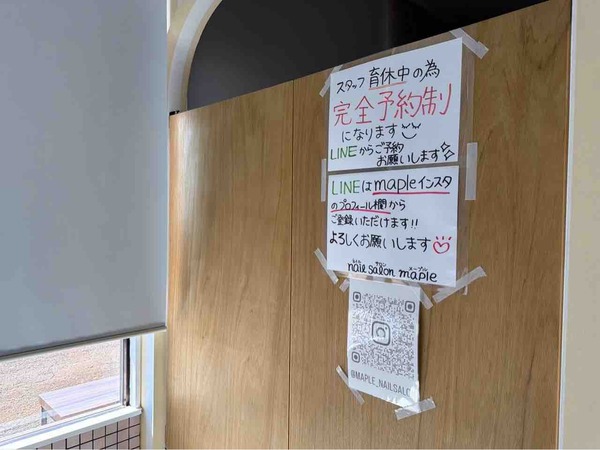 スタッフ 育休中の為
完全予約制
になります
LINEからご予約
お願いします
LINEはmapleインスタ
のプロフィール欄から
ご登録いただけます!!
よろしくお願いします
ネイル サロン メープル
nail salon maple
@MAPLE_NAILSALO